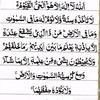 اللَّهُ لَا إِلَٰهَ إِلَّا هُوَ الْحَيُّ الْقَيُّومُ
لَا تَأْخُذُهُ سِنَةٌ وَلَا نَوْمٌ لَهُ مَا فِي السَّمَوَاتِ
وَمَا فِي الْأَرْضِ مَنْ ذَا الَّذِي يَشْفَعُ عِنْدَهُ
إِلَّا بِإِذْنِهِ يَعْلَمُ مَا بَيْنَ أَيْدِيهِمْ وَمَا خَلْفَهُمْ
وَلَا يُحِيطُونَ بِشَيْءٍ مِنْ عِلْمِهِ إِلَّا بِمَا شَاءَ
وَسِعَ كُرْسِيُّهُ السَّمَوَاتِ وَالْأَرْضَ
وَلَا يَئُودُهُ حِفْظُهُمَا